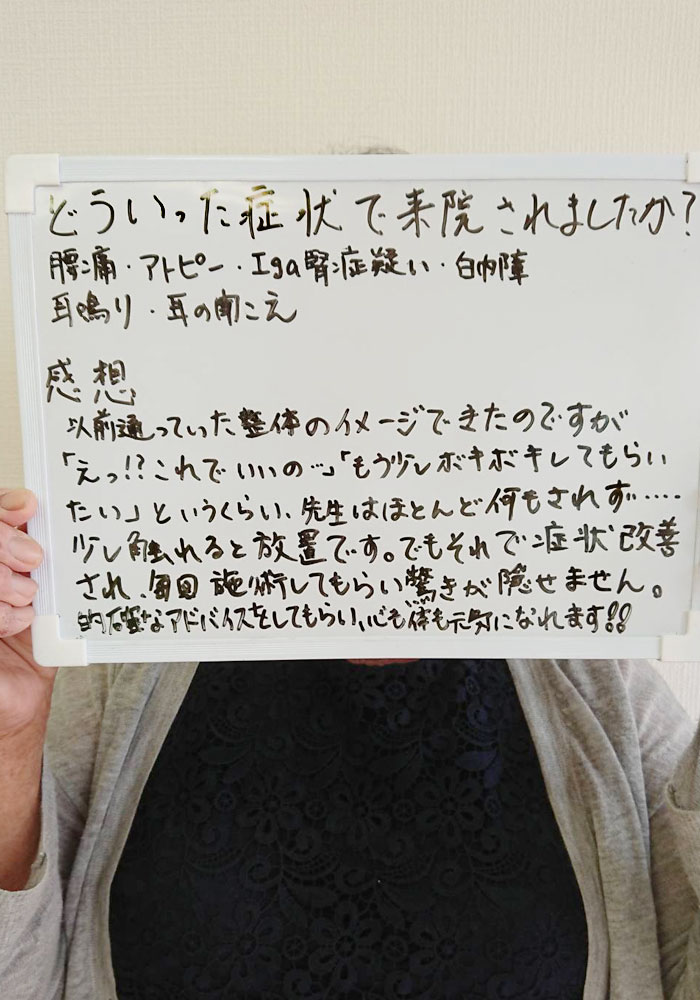 どういった症状で来院されましたか?
腰痛・アトピー・Iga腎症疑い・白内障
耳鳴り・耳の聞こえ
感想
以前通っていた整体のイメージできたのですが
「えっ!?これでいいの…」「もう少しボキボキしてもらい
たい」というくらい、先生はほとんど何もされず……
少し触れると放置です。でもそれで症状改善
され、毎回施術してもらい驚きが隠せません。
的確なアドバイスをしてもらい、心も体も元気になれます!!